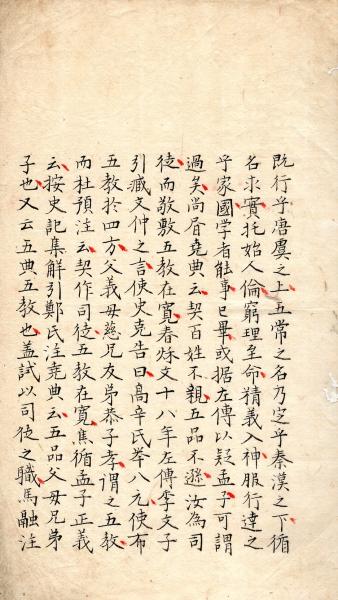 既行乎唐虞之上五常之名乃定乎秦漢之下循
名求實托始人倫窮理至命精義入神服行達之
乎家國学者能事已畢或据左傳以疑孟子可謂
過矣尚眉堯典云契百姓不親五品不遜汝為司
徒而敬敷五教在寬春秌文十八年左傳李文子
引臧文仲之言使史克告曰高辛氏举八元使布
五教於四方父義母慈兄友弟恭子孝謂之五教
而杜預注云契作司徒五教在寬焦循孟子正義
云按史記集解引鄭氏注堯典云五品父母兄弟
子也又云五典五教也盖試以司徒之職馬融注